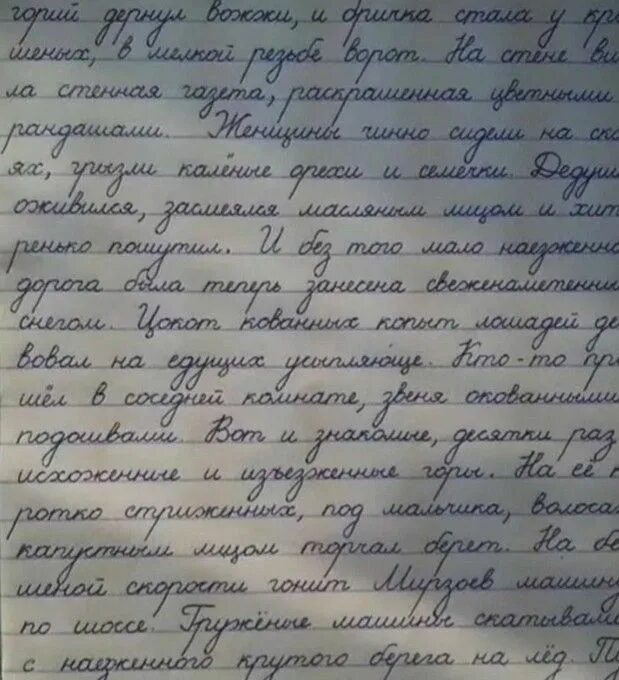 горий дернул вожжи, и бричка стала у кра
шеных, в мелкой резьбе ворот. На стене ви
ла стенная газета, раскрашенная цветными
рандашами. Женщины чинно сидели на ска
ях, грызли калёные орехи и семечки. Дедуш
оживился, засмеялся масляным лицом и хит
ренько пошутил. И без того мало наезженна
дорога была теперь занесена свеженаметенным
снегом. Цокот кованных копыт лошадей де
вовал на едущих усыпляюще. Кто-то пр
шёл в соседней комнате, звеня окованными
подошвами. Вот и знакомые, десятки раз
исхоженные и изъезженные горы. На её к
ротко стриженных, под мальчика, волосах
капустным лицом торчал берет. На бе
шеной скорости гонит Мирзоев машину
по шоссе. Гружёные машины скатывали
с наезженного крутого берега на лёд. П